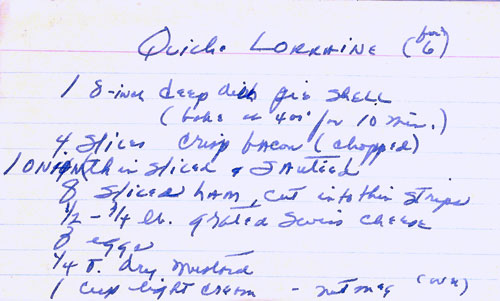 Quiche LORRAINE (for 6)
1 8-inch deep dish pie shell
(bake at 400° for 10 min.)
4 slices crisp bacon (chopped)
1 ONION (thin sliced & sauteed
8 sliced ham, cut into thin strips
1/2 - 3/4 lb. grated swiss cheese
8 eggs
1/4 t. dry mustard
1 cup light cream - nutmeg